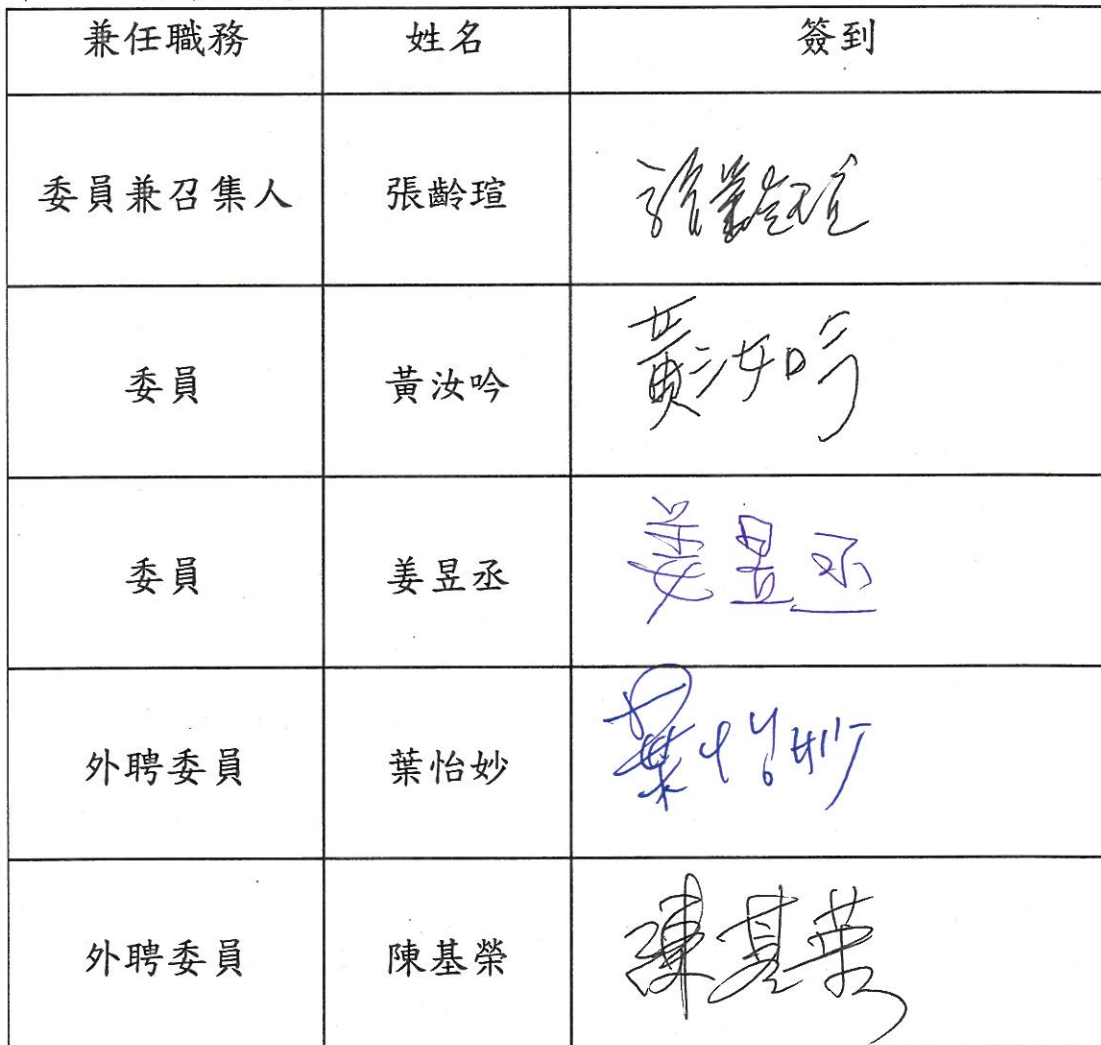 兼任職務 姓名 簽到
委員兼召集人 張齡瑄 張齡瑄
委員 黃汝吟 黃汝吟
委員 姜昱丞 姜昱丞
外聘委員 葉怡妙 葉怡妙
外聘委員 陳基榮 陳基荣